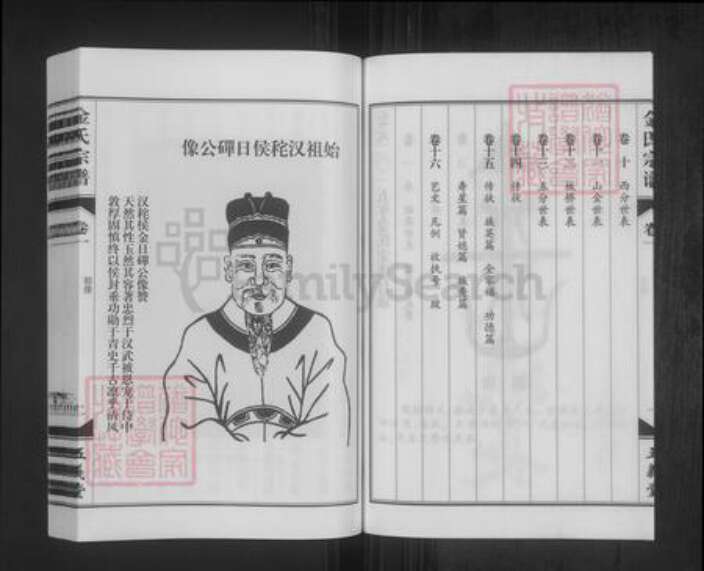 卷十 西分世表
卷十一 山金世表
卷十二 板桥世表
卷十三 东分世表
卷十四 传状
卷十五 传状 雄英篇 全家福 功德篇
寿星篇 贤德篇
卷十六 艺文 凡例 收执号 跋
始祖汉秺侯日磾公像
汉秺侯金日磾公像赞
天然其性玉然其容著忠烈于汉武被恩宠于侍中
敦厚固慎终以侯封垂功勋于青史千古凛乎清风
金氏宗谱
卷一
五义堂
FamilySearch